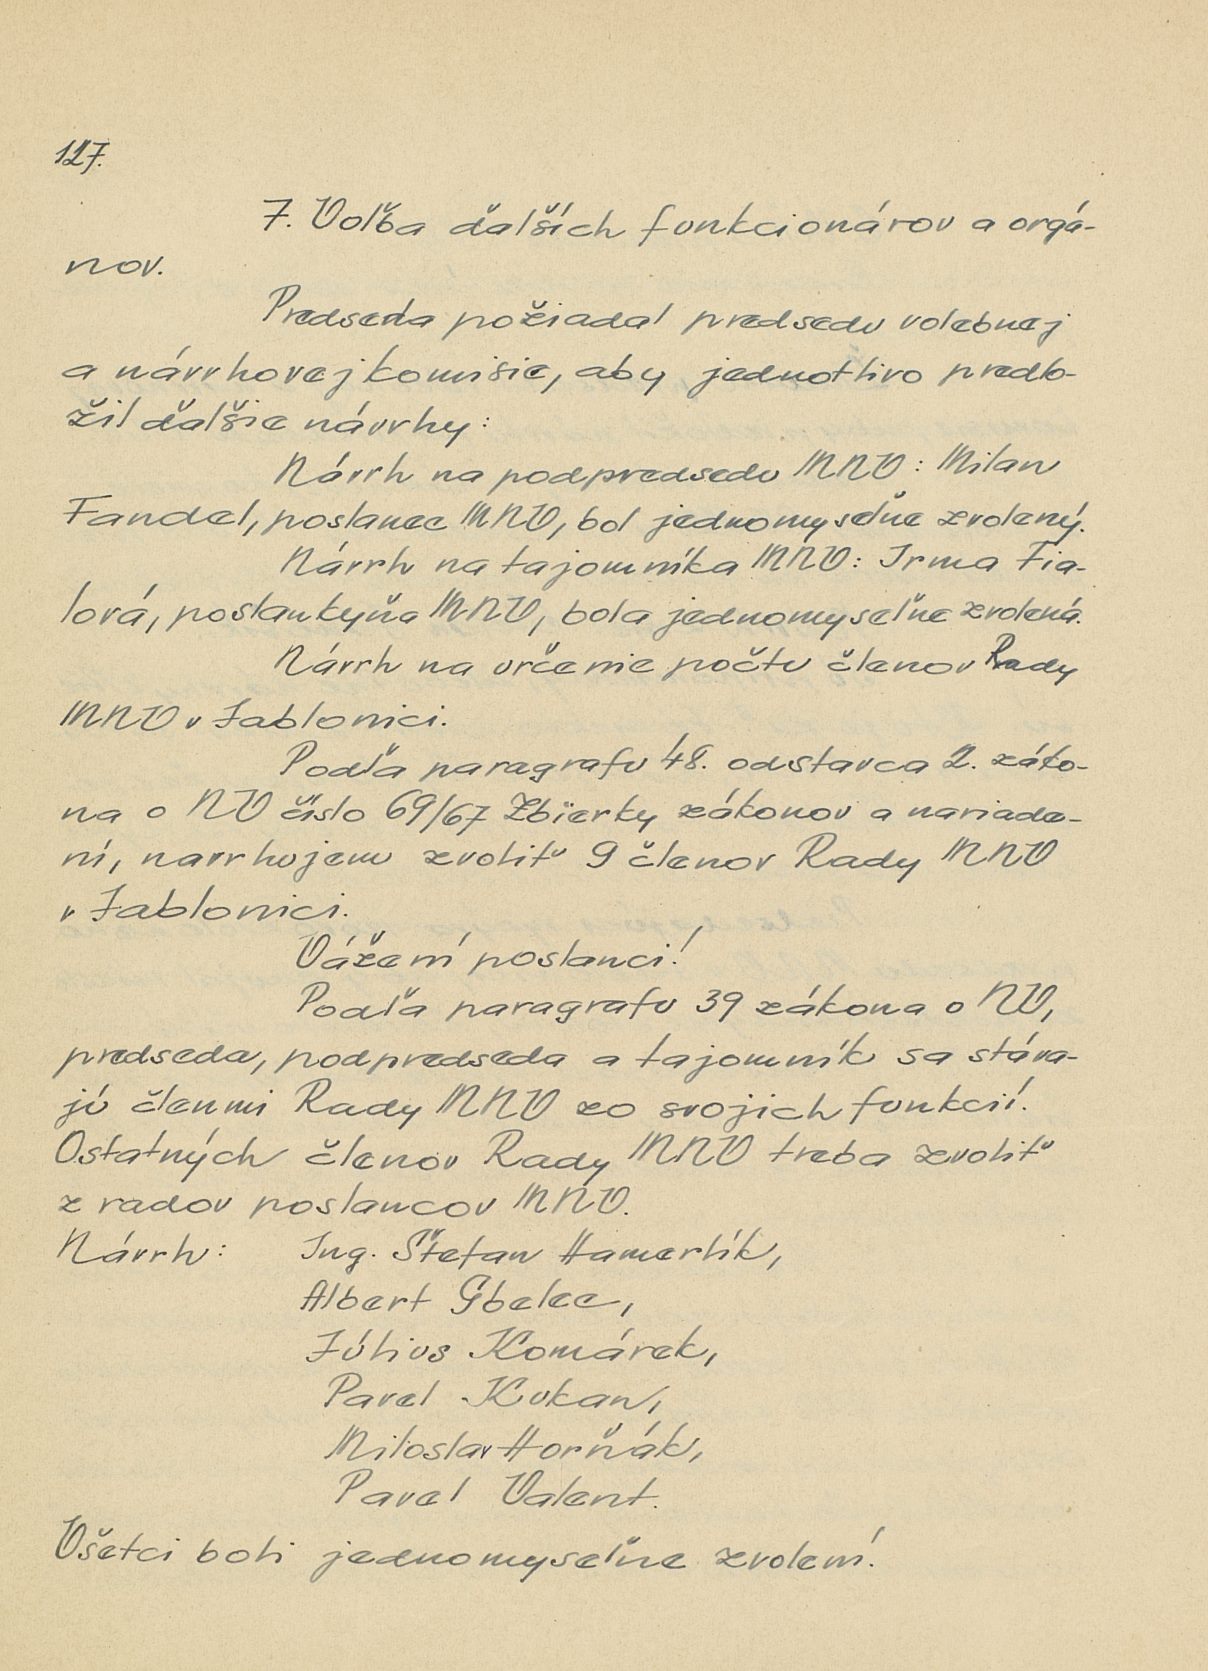 127.
7. Voľba ďalších funkcionárov a orgá-
nov.
Predseda požiadal predsedu volebnej
a návrhovej komisie, aby jednotlivo predlo-
žil ďalšie návrhy:
Návrh na podpredsedu MNV: Milan
Fandel, poslanec MNV, bol jednomyseľne zvolený.
Návrh na tajomníka MNV: Irma Fia-
lová, poslankyňa MNV, bola jednomyseľne zvolená.
Návrh na určenie počtu členov Rady
MNV v Jablonici.
Podľa paragrafu 48. odstavca 2. záko-
na o NV číslo 69/67 Zbierky zákonov a nariade-
ní, navrhujem zvoliť 9 členov Rady MNV
v Jablonici.
Vážení poslanci!
Podľa paragrafu 39 zákona o NV,
predseda, podpredseda a tajomník sa stáva-
jú členmi Rady MNV zo svojich funkcií.
Ostatných členov Rady MNV treba zvoliť
z radov poslancov MNV.
Návrh: Ing. Štefan Hamerlík,
Albert Gbelec,
Július Komárek,
Pavel Kukan,
Miloslav Horňák,
Pavel Valent.
Všetci boli jednomyseľne zvolení.